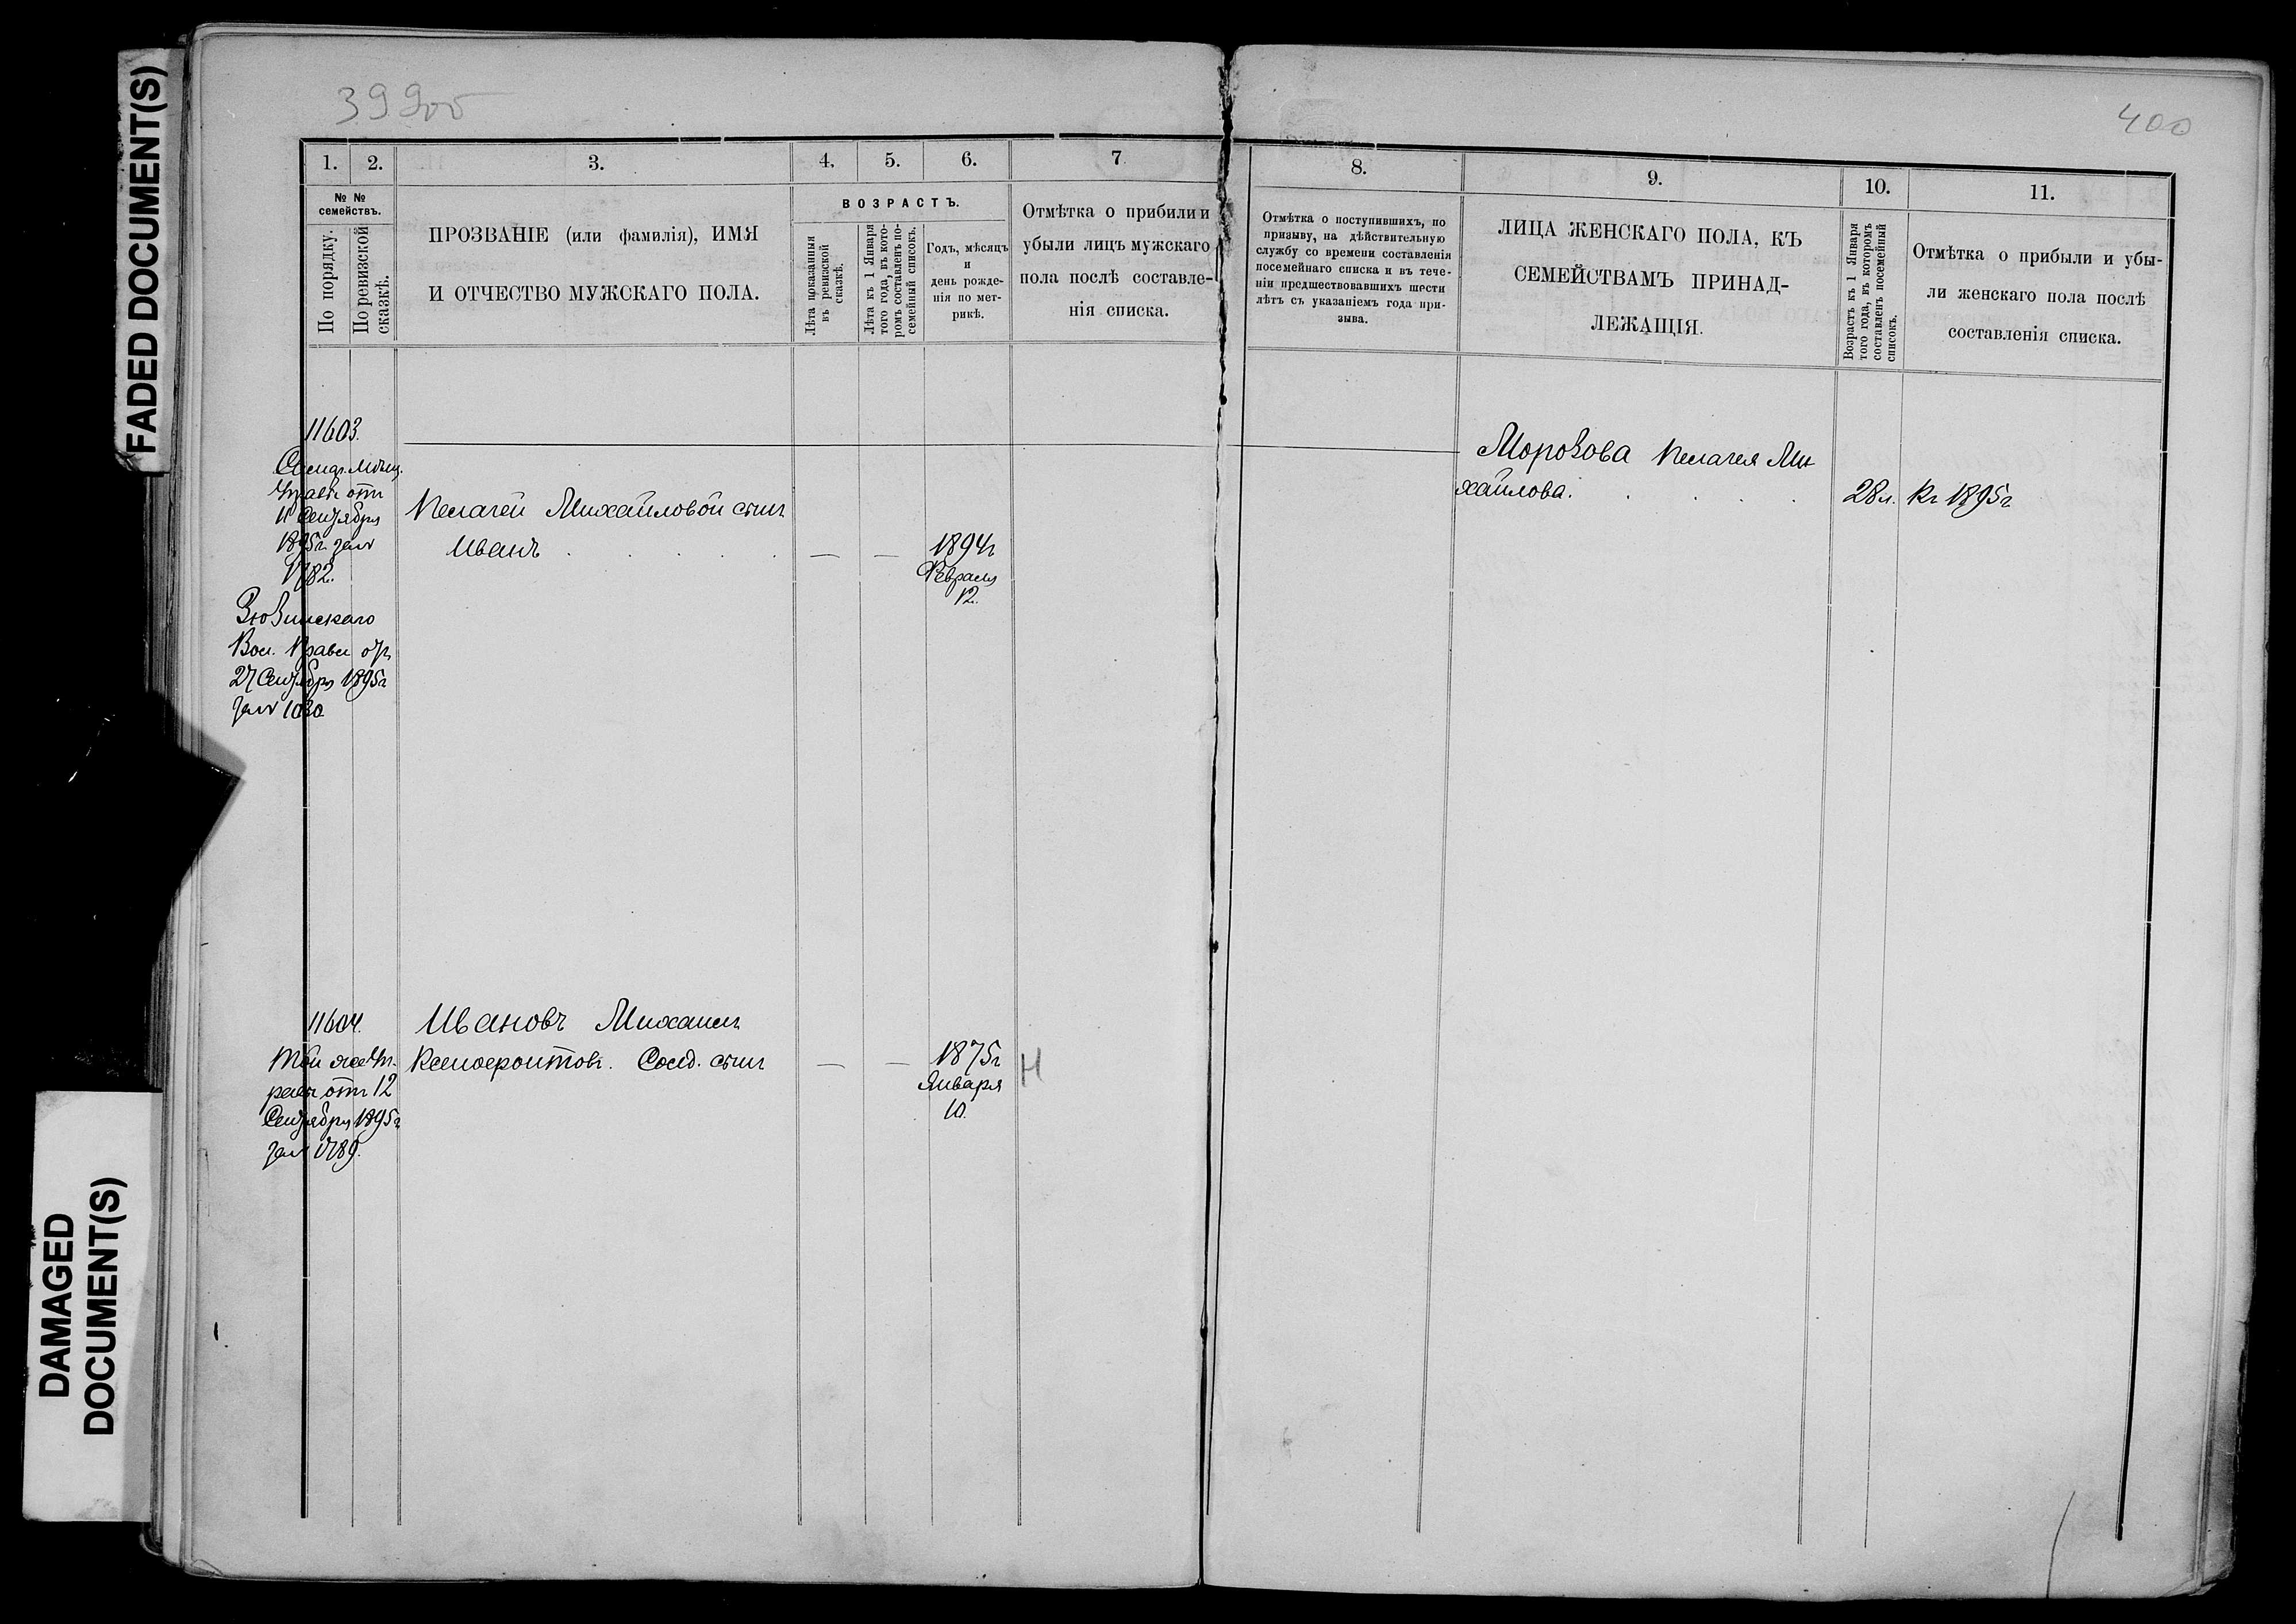 FADED DOCUMENT(S)
DAMAGED
DOCUMENT(S)
399об
400
1.
2.
3.
4.
5.
6.
7
8.
9.
10.
11.
№ №
семействъ.
По порядку.
По ревизской
сказкѣ.
ПРОЗВАНІЕ (или фамилія), ИМЯ
И ОТЧЕСТВО МУЖСКАГО ПОЛА.
ВОЗРАСТЪ.
Лѣта показанныя
въ ревизской
сказкѣ.
Лѣта къ 1 Января
того года, въ кото-
ромъ составленъ по-
семейный списокъ.
Годъ, мѣсяцъ
и
день рожде-
нія по мет-
рикѣ.
Отмѣтка о прибили и
убыли лицъ мужскаго
пола послѣ составле-
нія списка.
Отмѣтка о поступившихъ, по
призыву, на дѣйствительную
службу со времени составленія
посемейнаго списка и въ тече-
ніи предшествовавшихъ шести
лѣтъ съ указаніемъ года при-
зыва.
ЛИЦА ЖЕНСКАГО ПОЛА, КЪ
СЕМЕЙСТВАМЪ ПРИНАД-
ЛЕЖАЩІЯ.
Возрастъ къ 1 Января
того года, въ которомъ
составленъ посемейный
списокъ.
Отмѣтка о прибыли и убы-
ли женскаго пола послѣ
составленія списка.
11603.
Мѣщ.
Управы отъ
11 Сентября
1895г. за №
1782.
Зюзинскаго
Вол. Правл. отъ
27 Сентября 1895г
за № 1030
Пелагеи Михайловой сынъ
Иванъ . . . . — — 1894г
Февраля
12.
Морозова Пелагея Ми
хайлова. . . . . 28л. Къ 1895г
11604.
Той же Уп-
равы отъ 12
Сентября 1895г
за № 1789.
Ивановъ Михаилъ
Ксенофонтовъ. Солд. сынъ — — 1875г Н
Января
10.